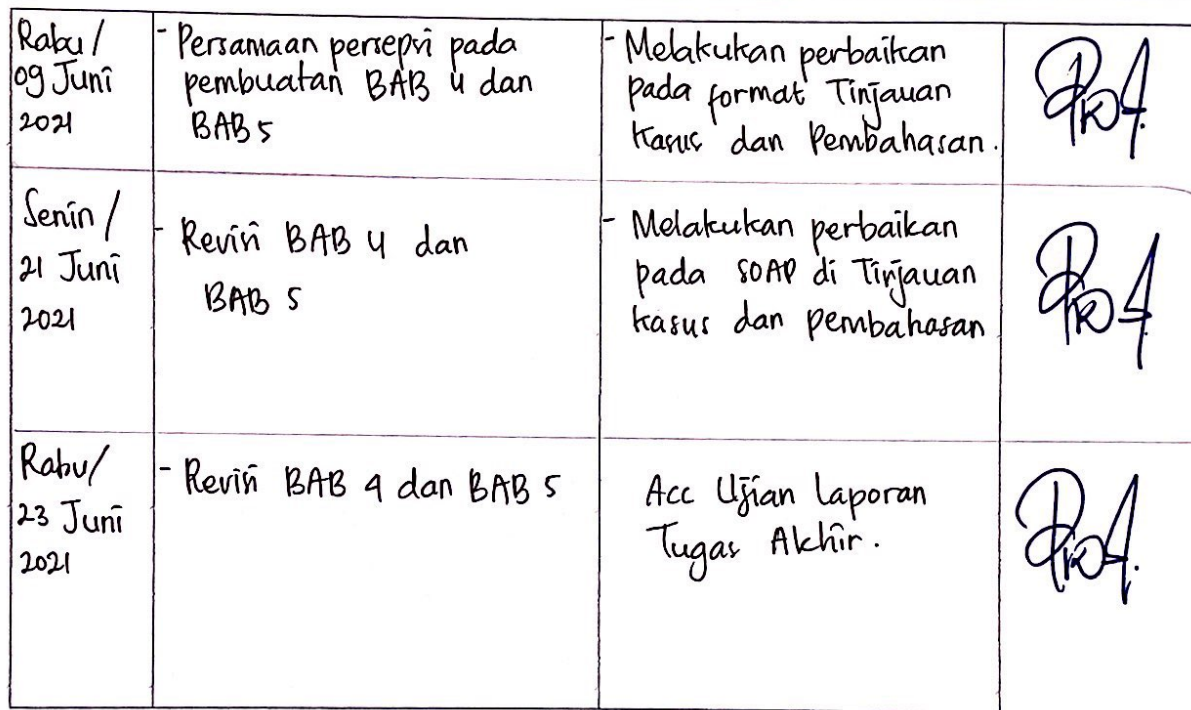 Rabu /
09 Juni
2021
- Persamaan persepsi pada
pembuatan BAB 4 dan
BAB 5
- Melakukan perbaikan
pada format Tinjauan
Kasus dan Pembahasan.
Senin /
21 Juni
2021
- Revisi BAB 4 dan
BAB 5
- Melakukan perbaikan
pada SOAP di Tinjauan
kasus dan pembahasan
Rabu/
23 Juni
2021
- Revisi BAB 4 dan BAB 5
Acc Ujian Laporan
Tugas Akhir.